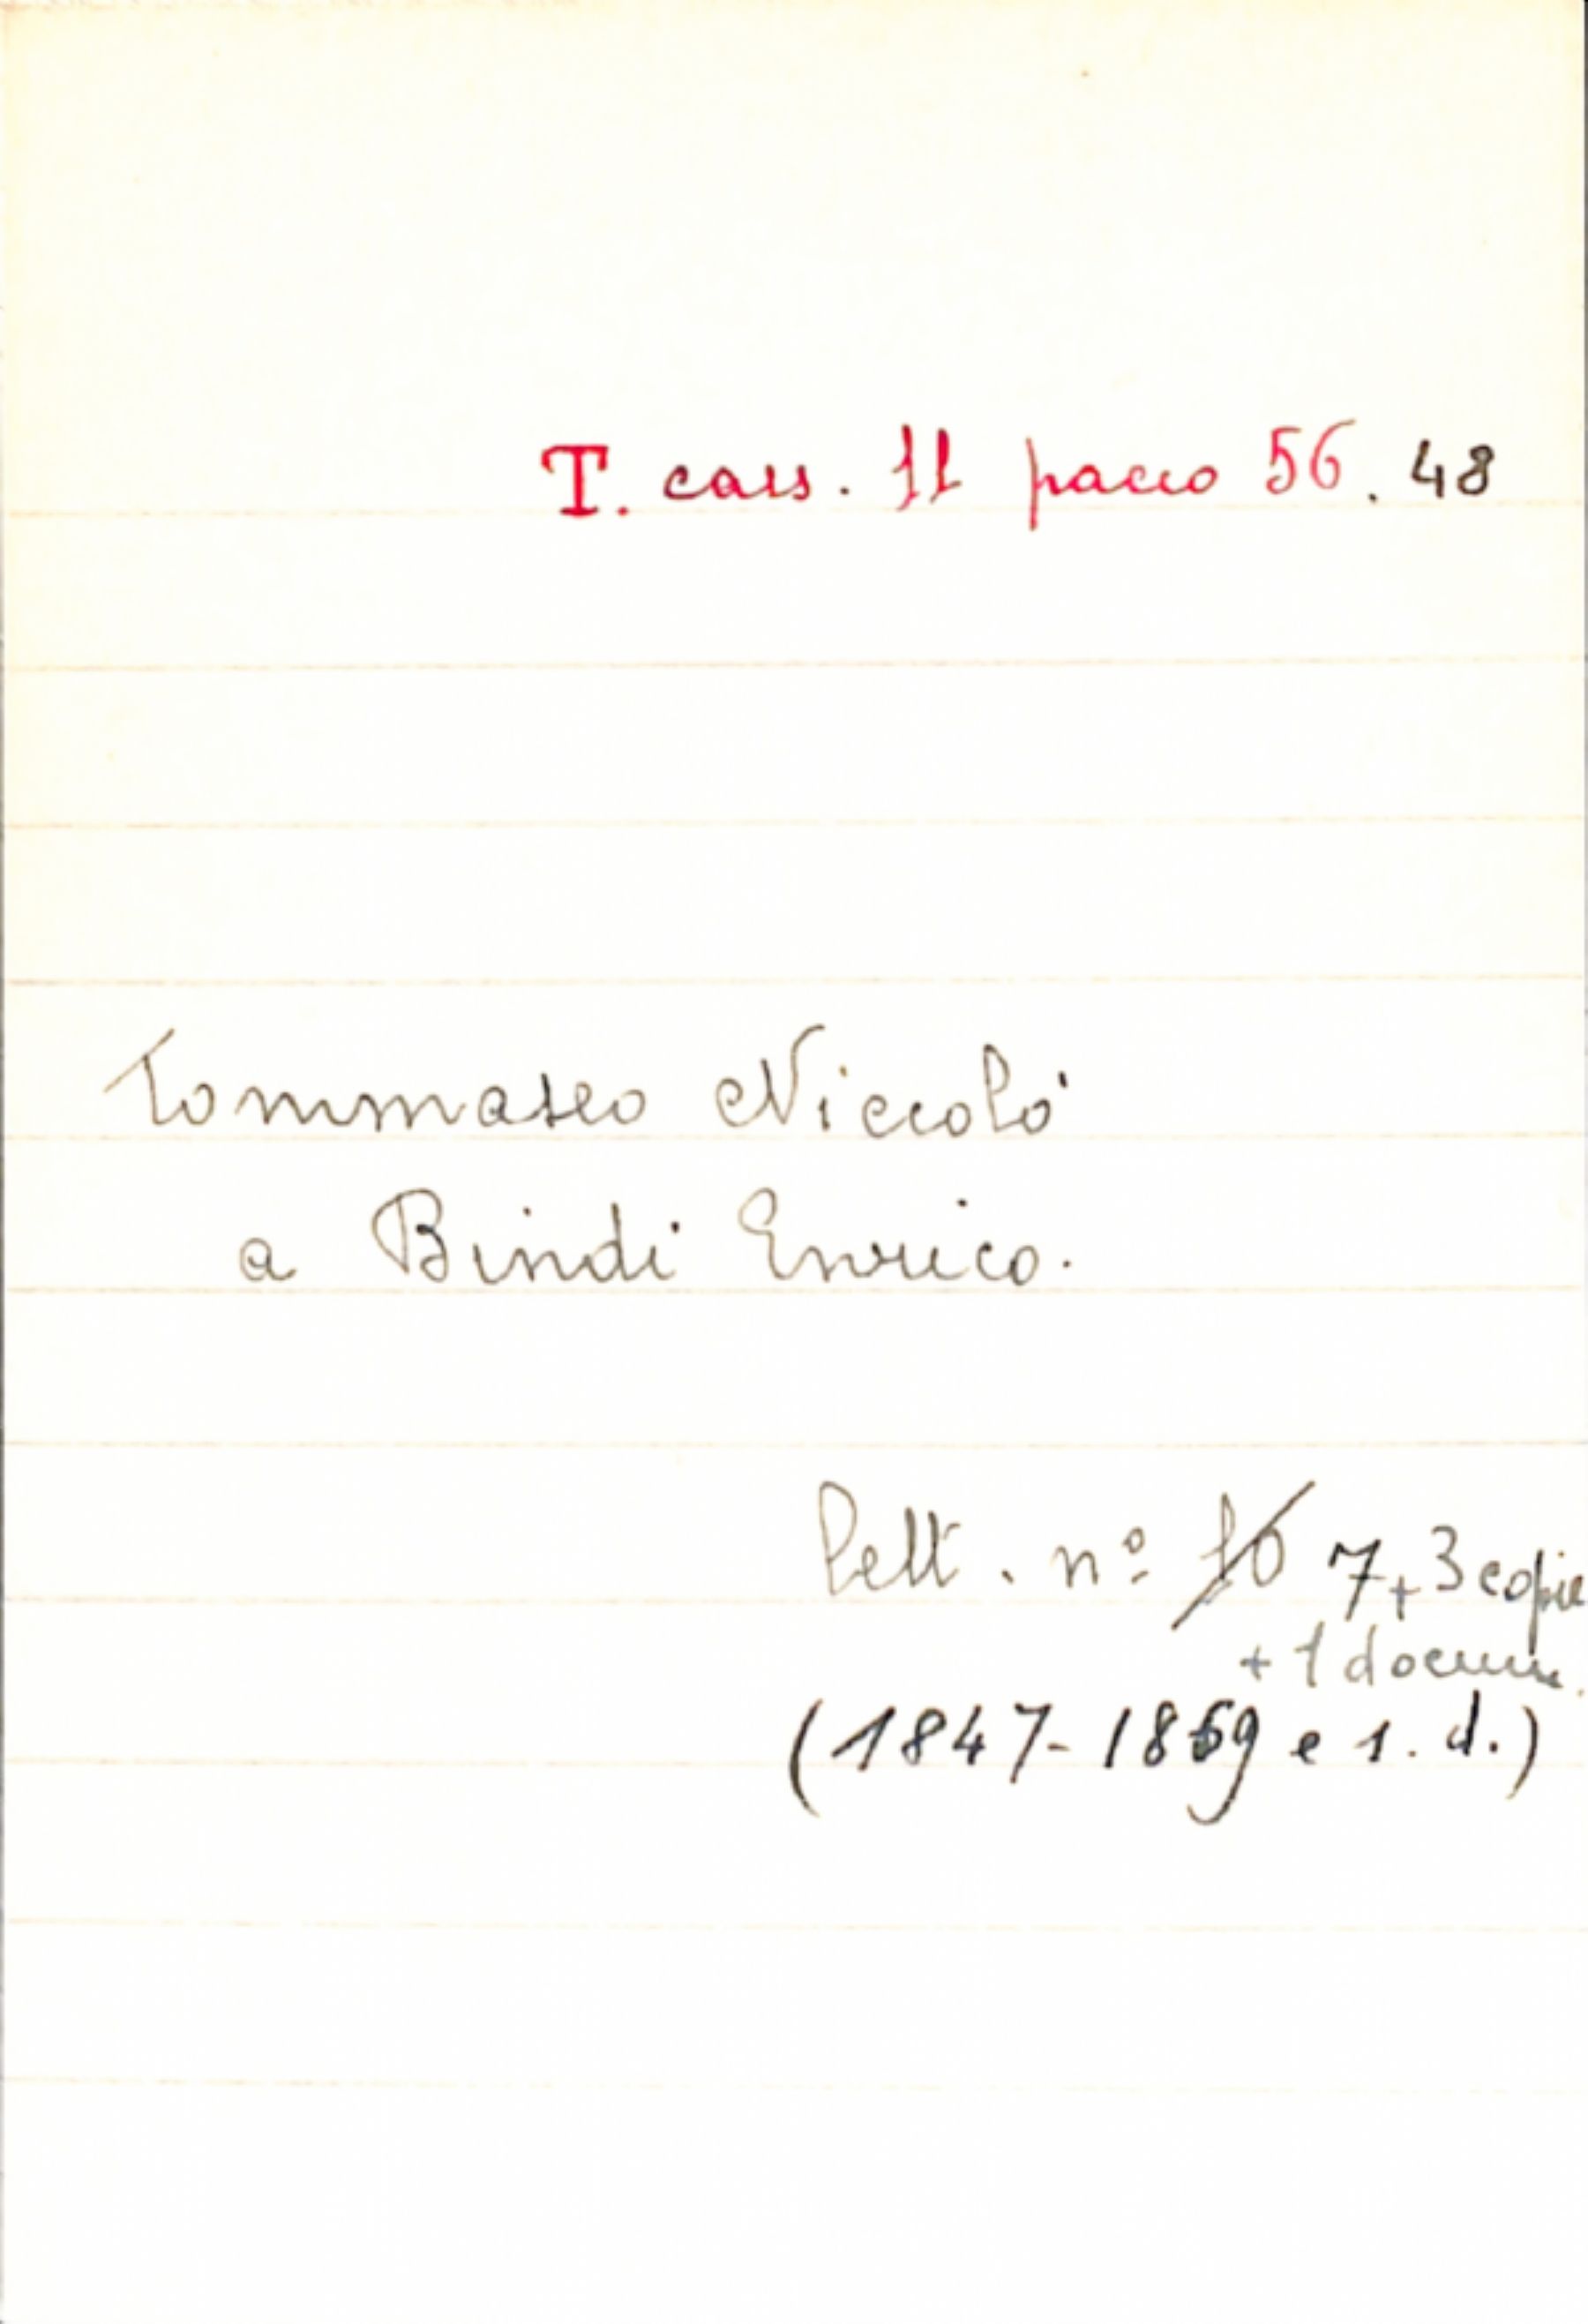 T. cass. 11 pacco 56. 48
Tommaseo Niccolò
a Bindi Enrico.
Lett. nº 10 7+3 copie
+ 1 docum.
(1847-1869 e s. d.)